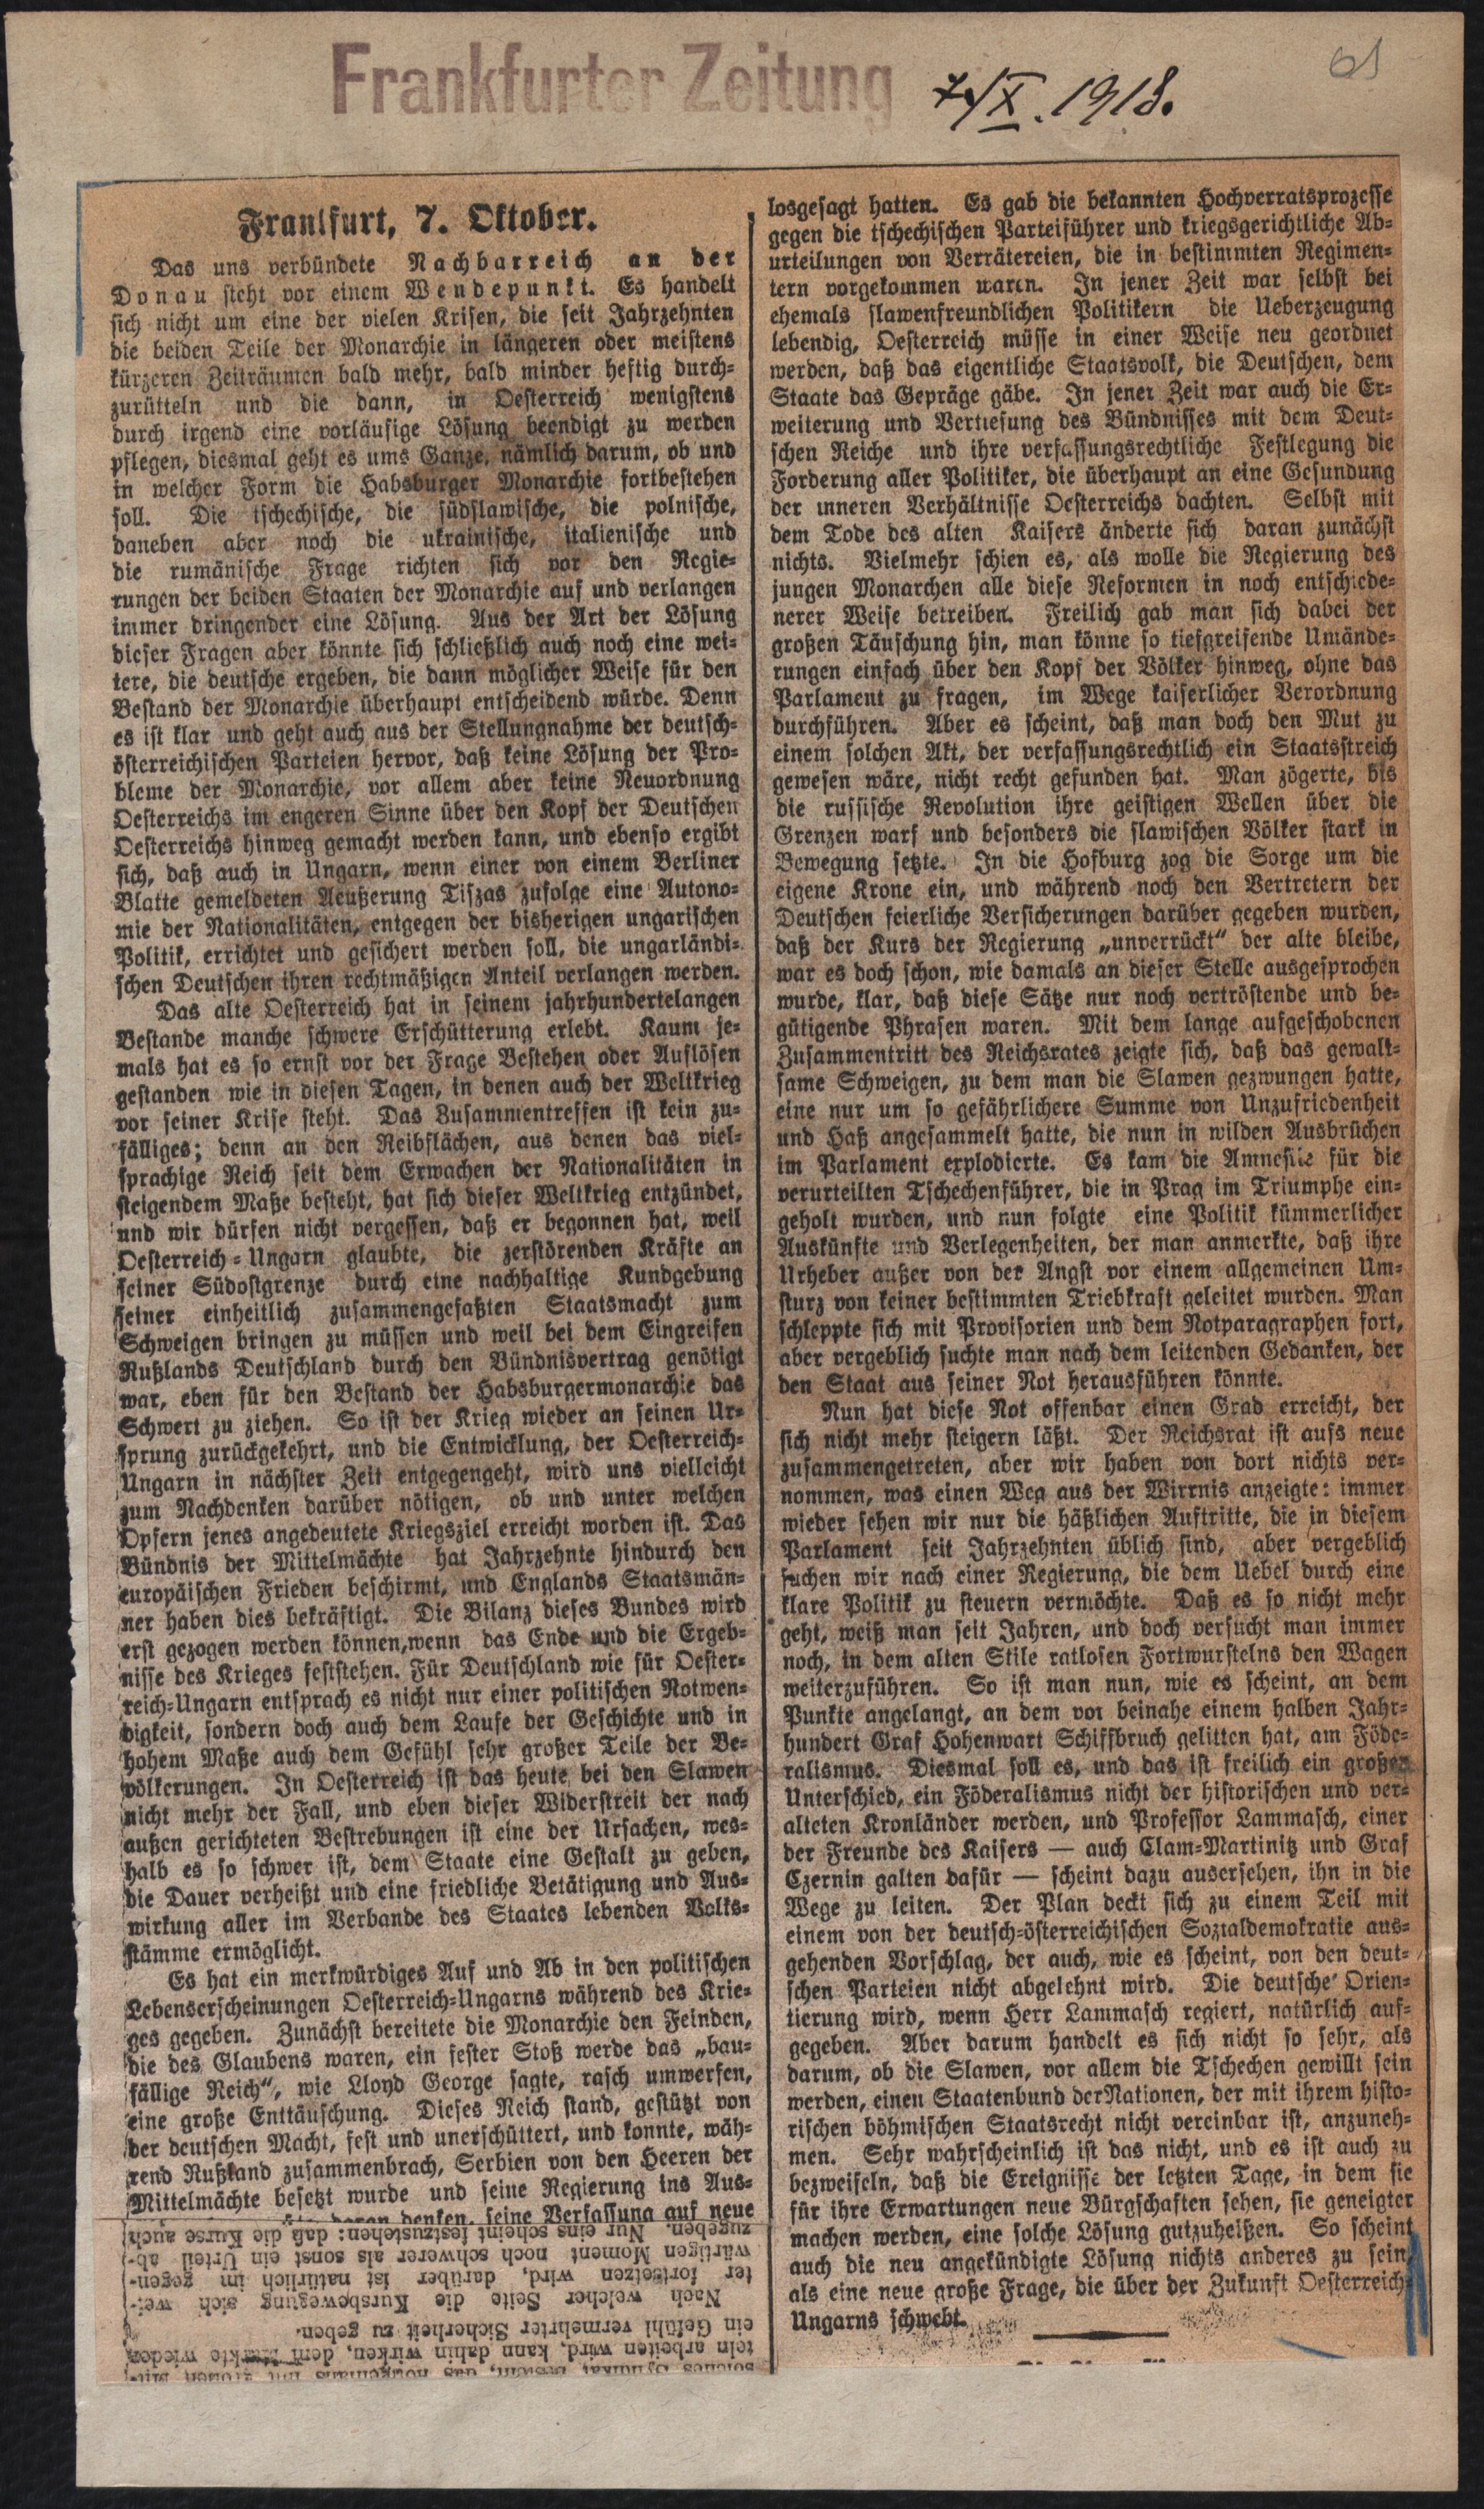 Frankfurter Zeitung 7/X. 1918.
61
Frankfurt, 7. Oktober.
Das uns verbündete Nachbarreich an der
Donau steht vor einem Wendepunkt. Es handelt
sich nicht um eine der vielen Krisen, die seit Jahrzehnten
die beiden Teile der Monarchie in längeren oder meistens
kürzeren Zeiträumen bald mehr, bald minder heftig durch-
zurütteln und die dann, in Oesterreich wenigstens
durch irgend eine vorläufige Lösung beendigt zu werden
pflegen, diesmal geht es ums Ganze, nämlich darum, ob und
in welcher Form die Habsburger Monarchie fortbestehen
soll. Die tschechische, die südslawische, die polnische,
daneben aber noch die ukrainische, italienische und
die rumänische Frage richten sich vor den Regie-
rungen der beiden Staaten der Monarchie auf und verlangen
immer dringender eine Lösung. Aus der Art der Lösung
dieser Fragen aber könnte sich schließlich auch noch eine wei-
tere, die deutsche ergeben, die dann möglicher Weise für den
Bestand der Monarchie überhaupt entscheidend würde. Denn
es ist klar und geht auch aus der Stellungnahme der deutsch-
österreichischen Parteien hervor, daß keine Lösung der Pro-
bleme der Monarchie, vor allem aber keine Neuordnung
Oesterreichs im engeren Sinne über den Kopf der Deutschen
Oesterreichs hinweg gemacht werden kann, und ebenso ergibt
sich, daß auch in Ungarn, wenn einer von einem Berliner
Blatte gemeldeten Aeußerung Tiszas zufolge eine Autono-
mie der Nationalitäten, entgegen der bisherigen ungarischen
Politik, errichtet und gesichert werden soll, die ungarländi-
schen Deutschen ihren rechtmäßigen Anteil verlangen werden.
Das alte Oesterreich hat in seinem jahrhundertelangen
Bestande manche schwere Erschütterung erlebt. Kaum je-
mals hat es so ernst vor der Frage Bestehen oder Auflösen
gestanden wie in diesen Tagen, in denen auch der Weltkrieg
vor seiner Krise steht. Das Zusammentreffen ist kein zu-
fälliges; denn an den Reibflächen, aus denen das viel-
sprachige Reich seit dem Erwachen der Nationalitäten in
steigendem Maße besteht, hat sich dieser Weltkrieg entzündet,
und wir dürfen nicht vergessen, daß er begonnen hat, weil
Oesterreich-Ungarn glaubte, die zerstörenden Kräfte an
seiner Südostgrenze durch eine nachhaltige Kundgebung
seiner einheitlich zusammengefaßten Staatsmacht zum
Schweigen bringen zu müssen und weil bei dem Eingreifen
Rußlands Deutschland durch den Bündnisvertrag genötigt
war, eben für den Bestand der Habsburgermonarchie das
Schwert zu ziehen. So ist der Krieg wieder an seinen Ur-
sprung zurückgekehrt, und die Entwicklung, der Oesterreich-
Ungarn in nächster Zeit entgegengeht, wird uns vielleicht
zum Nachdenken darüber nötigen, ob und unter welchen
Opfern jenes angedeutete Kriegsziel erreicht worden ist. Das
Bündnis der Mittelmächte hat Jahrzehnte hindurch den
europäischen Frieden beschirmt, und Englands Staatsmän-
ner haben dies bekräftigt. Die Bilanz dieses Bundes wird
erst gezogen werden können,wenn das Ende und die Ergeb-
nisse des Krieges feststehen. Für Deutschland wie für Oester-
reich-Ungarn entsprach es nicht nur einer politischen Notwen-
digkeit, sondern doch auch dem Laufe der Geschichte und in
hohem Maße auch dem Gefühl sehr großer Teile der Be-
völkerungen. In Oesterreich ist das heute bei den Slawen
nicht mehr der Fall, und eben dieser Widerstreit der nach
außen gerichteten Bestrebungen ist eine der Ursachen, wes-
halb es so schwer ist, dem Staate eine Gestalt zu geben,
die Dauer verheißt und eine friedliche Betätigung und Aus-
wirkung aller im Verbande des Staates lebenden Volks-
stämme ermöglicht.
Es hat ein merkwürdiges Auf und Ab in den politischen
Lebenserscheinungen Oesterreich-Ungarns während des Krie-
ges gegeben. Zunächst bereitete die Monarchie den Feinden,
die des Glaubens waren, ein fester Stoß werde das „bau-
fällige Reich“, wie Lloyd George sagte, rasch umwerfen,
eine große Enttäuschung. Dieses Reich stand, gestützt von
der deutschen Macht, fest und unerschüttert, und konnte, wäh-
rend Rußland zusammenbrach, Serbien von den Heeren der
Mittelmächte besetzt wurde und seine Regierung ins Aus-
daran denken, seine Verfassung auf neue
zugeben. Nur eins scheint festzustehen: daß die Kurse auch
wärtigen Moment noch schwerer als sonst ein Urteil ab-
ter fortsetzen wird, darüber ist natürlich im gegen-
Nach welcher Seite die Kursbewegung sich wei-
ein Gefühl vermehrter Sicherheit zu geben.
teln arbeiten wird, kann dahin wirken, dem Markte wieder
losgesagt hatten. Es gab die bekannten Hochverratsprozesse
gegen die tschechischen Parteiführer und kriegsgerichtliche Ab-
urteilungen von Verrätereien, die in bestimmten Regimen-
tern vorgekommen waren. In jener Zeit war selbst bei
ehemals slawenfreundlichen Politikern die Ueberzeugung
lebendig, Oesterreich müsse in einer Weise neu geordnet
werden, daß das eigentliche Staatsvolk, die Deutschen, dem
Staate das Gepräge gäbe. In jener Zeit war auch die Er-
weiterung und Vertiefung des Bündnisses mit dem Deut-
schen Reiche und ihre verfassungsrechtliche Festlegung die
Forderung aller Politiker, die überhaupt an eine Gesundung
der inneren Verhältnisse Oesterreichs dachten. Selbst mit
dem Tode des alten Kaisers änderte sich daran zunächst
nichts. Vielmehr schien es, als wolle die Regierung des
jungen Monarchen alle diese Reformen in noch entschiede-
nerer Weise betreiben. Freilich gab man sich dabei der
großen Täuschung hin, man könne so tiefgreifende Umände-
rungen einfach über den Kopf der Völker hinweg, ohne das
Parlament zu fragen, im Wege kaiserlicher Verordnung
durchführen. Aber es scheint, daß man doch den Mut zu
einem solchen Akt, der verfassungsrechtlich ein Staatsstreich
gewesen wäre, nicht recht gefunden hat. Man zögerte, bis
die russische Revolution ihre geistigen Wellen über die
Grenzen warf und besonders die slawischen Völker stark in
Bewegung setzte. In die Hofburg zog die Sorge um die
eigene Krone ein, und während noch den Vertretern der
Deutschen feierliche Versicherungen darüber gegeben wurden,
daß der Kurs der Regierung „unverrückt“ der alte bleibe,
war es doch schon, wie damals an dieser Stelle ausgesprochen
wurde, klar, daß diese Sätze nur noch vertröstende und be-
gütigende Phrasen waren. Mit dem lange aufgeschobenen
Zusammentritt des Reichsrates zeigte sich, daß das gewalt-
same Schweigen, zu dem man die Slawen gezwungen hatte,
eine nur um so gefährlichere Summe von Unzufriedenheit
und Haß angesammelt hatte, die nun in wilden Ausbrüchen
im Parlament explodierte. Es kam die Amnestie für die
verurteilten Tschechenführer, die in Prag im Triumphe ein-
geholt wurden, und nun folgte eine Politik kümmerlicher
Auskünfte und Verlegenheiten, der man anmerkte, daß ihre
Urheber außer von der Angst vor einem allgemeinen Um-
sturz von keiner bestimmten Triebkraft geleitet wurden. Man
schleppte sich mit Provisorien und dem Notparagraphen fort,
aber vergeblich suchte man nach dem leitenden Gedanken, der
den Staat aus seiner Not herausführen könnte.
Nun hat diese Not offenbar einen Grad erreicht, der
sich nicht mehr steigern läßt. Der Reichsrat ist aufs neue
zusammengetreten, aber wir haben von dort nichts ver-
nommen, was einen Weg aus der Wirrnis anzeigte: immer
wieder sehen wir nur die häßlichen Auftritte, die in diesem
Parlament seit Jahrzehnten üblich sind, aber vergeblich
suchen wir nach einer Regierung, die dem Uebel durch eine
klare Politik zu steuern vermöchte. Daß es so nicht mehr
geht, weiß man seit Jahren, und doch versucht man immer
noch, in dem alten Stile ratlosen Fortwurstelns den Wagen
weiterzuführen. So ist man nun, wie es scheint, an dem
Punkte angelangt, an dem vor beinahe einem halben Jahr-
hundert Graf Hohenwart Schiffbruch gelitten hat, am Föde-
ralismus. Diesmal soll es, und das ist freilich ein großer
Unterschied, ein Föderalismus nicht der historischen und ver-
alteten Kronländer werden, und Professor Lammasch, einer
der Freunde des Kaisers — auch Clam-Martinitz und Graf
Czernin galten dafür — scheint dazu ausersehen, ihn in die
Wege zu leiten. Der Plan deckt sich zu einem Teil mit
einem von der deutsch-österreichischen Sozialdemokratie aus-
gehenden Vorschlag, der auch, wie es scheint, von den deut-
schen Parteien nicht abgelehnt wird. Die deutsche Orien-
tierung wird, wenn Herr Lammasch regiert, natürlich auf-
gegeben. Aber darum handelt es sich nicht so sehr, als
darum, ob die Slawen, vor allem die Tschechen gewillt sein
werden, einen Staatenbund derNationen, der mit ihrem histo-
rischen böhmischen Staatsrecht nicht vereinbar ist, anzuneh-
men. Sehr wahrscheinlich ist das nicht, und es ist auch zu
bezweifeln, daß die Ereignisse der letzten Tage, in dem sie
für ihre Erwartungen neue Bürgschaften sehen, sie geneigter
machen werden, eine solche Lösung gutzuheißen. So scheint
auch die neu angekündigte Lösung nichts anderes zu sein,
als eine neue große Frage, die über der Zukunft Oesterreich-
Ungarns schwebt.